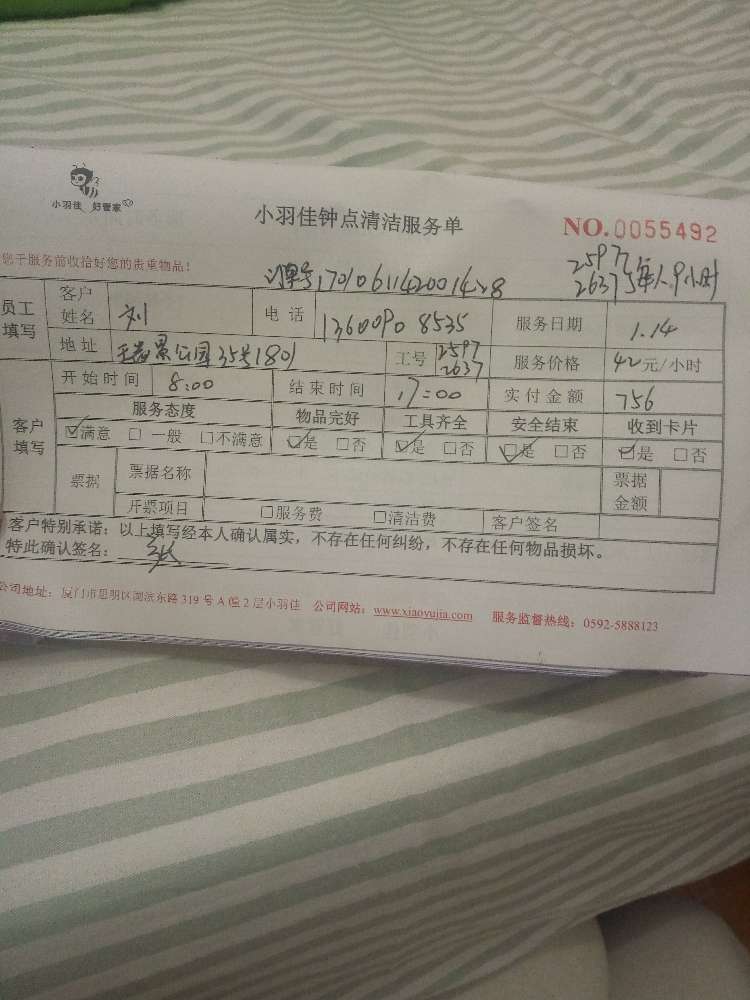 小羽佳 好管家
小羽佳钟点清洁服务单
NO.0055492
您于服务前收拾好您的贵重物品!
订单号1701061142001428
2597
2637 每人9小时
员工填写
客户姓名 刘 电话 13600908535 服务日期 1.14
地址 公园35号1801 工号 2597 2637 服务价格 42元/小时
开始时间 8:00 结束时间 17:00 实付金额 756
客户填写
服务态度 物品完好 工具齐全 安全结束 收到卡片
☑满意 □一般 □不满意 ☑是 □否 ☑是 □否 ☑是 □否 ☑是 □否
票据 票据名称 票据金额
开票项目 □服务费 □清洁费 客户签名
客户特别承诺：以上填写经本人确认属实，不存在任何纠纷，不存在任何物品损坏。
特此确认签名：
公司地址：厦门市思明区湖滨东路319号A幢2层小羽佳 公司网站：www.xiaoyujia.com 服务监督热线：0592-5888123